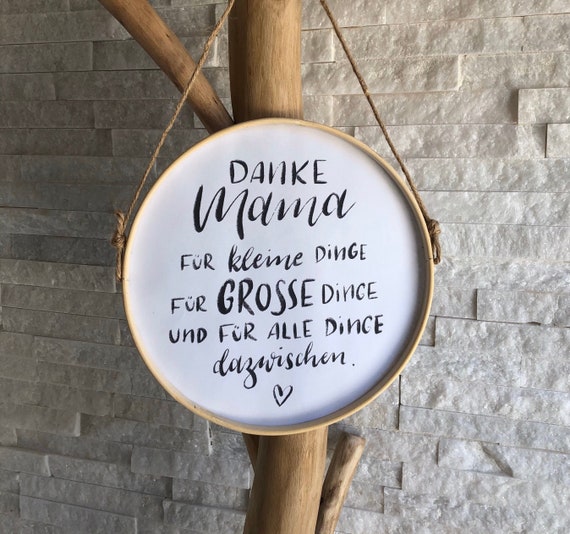 DANKE
Mama
FÜR kleine DINGE
FÜR GROSSE DINGE
UND FÜR ALLE DINGE
dazwischen.